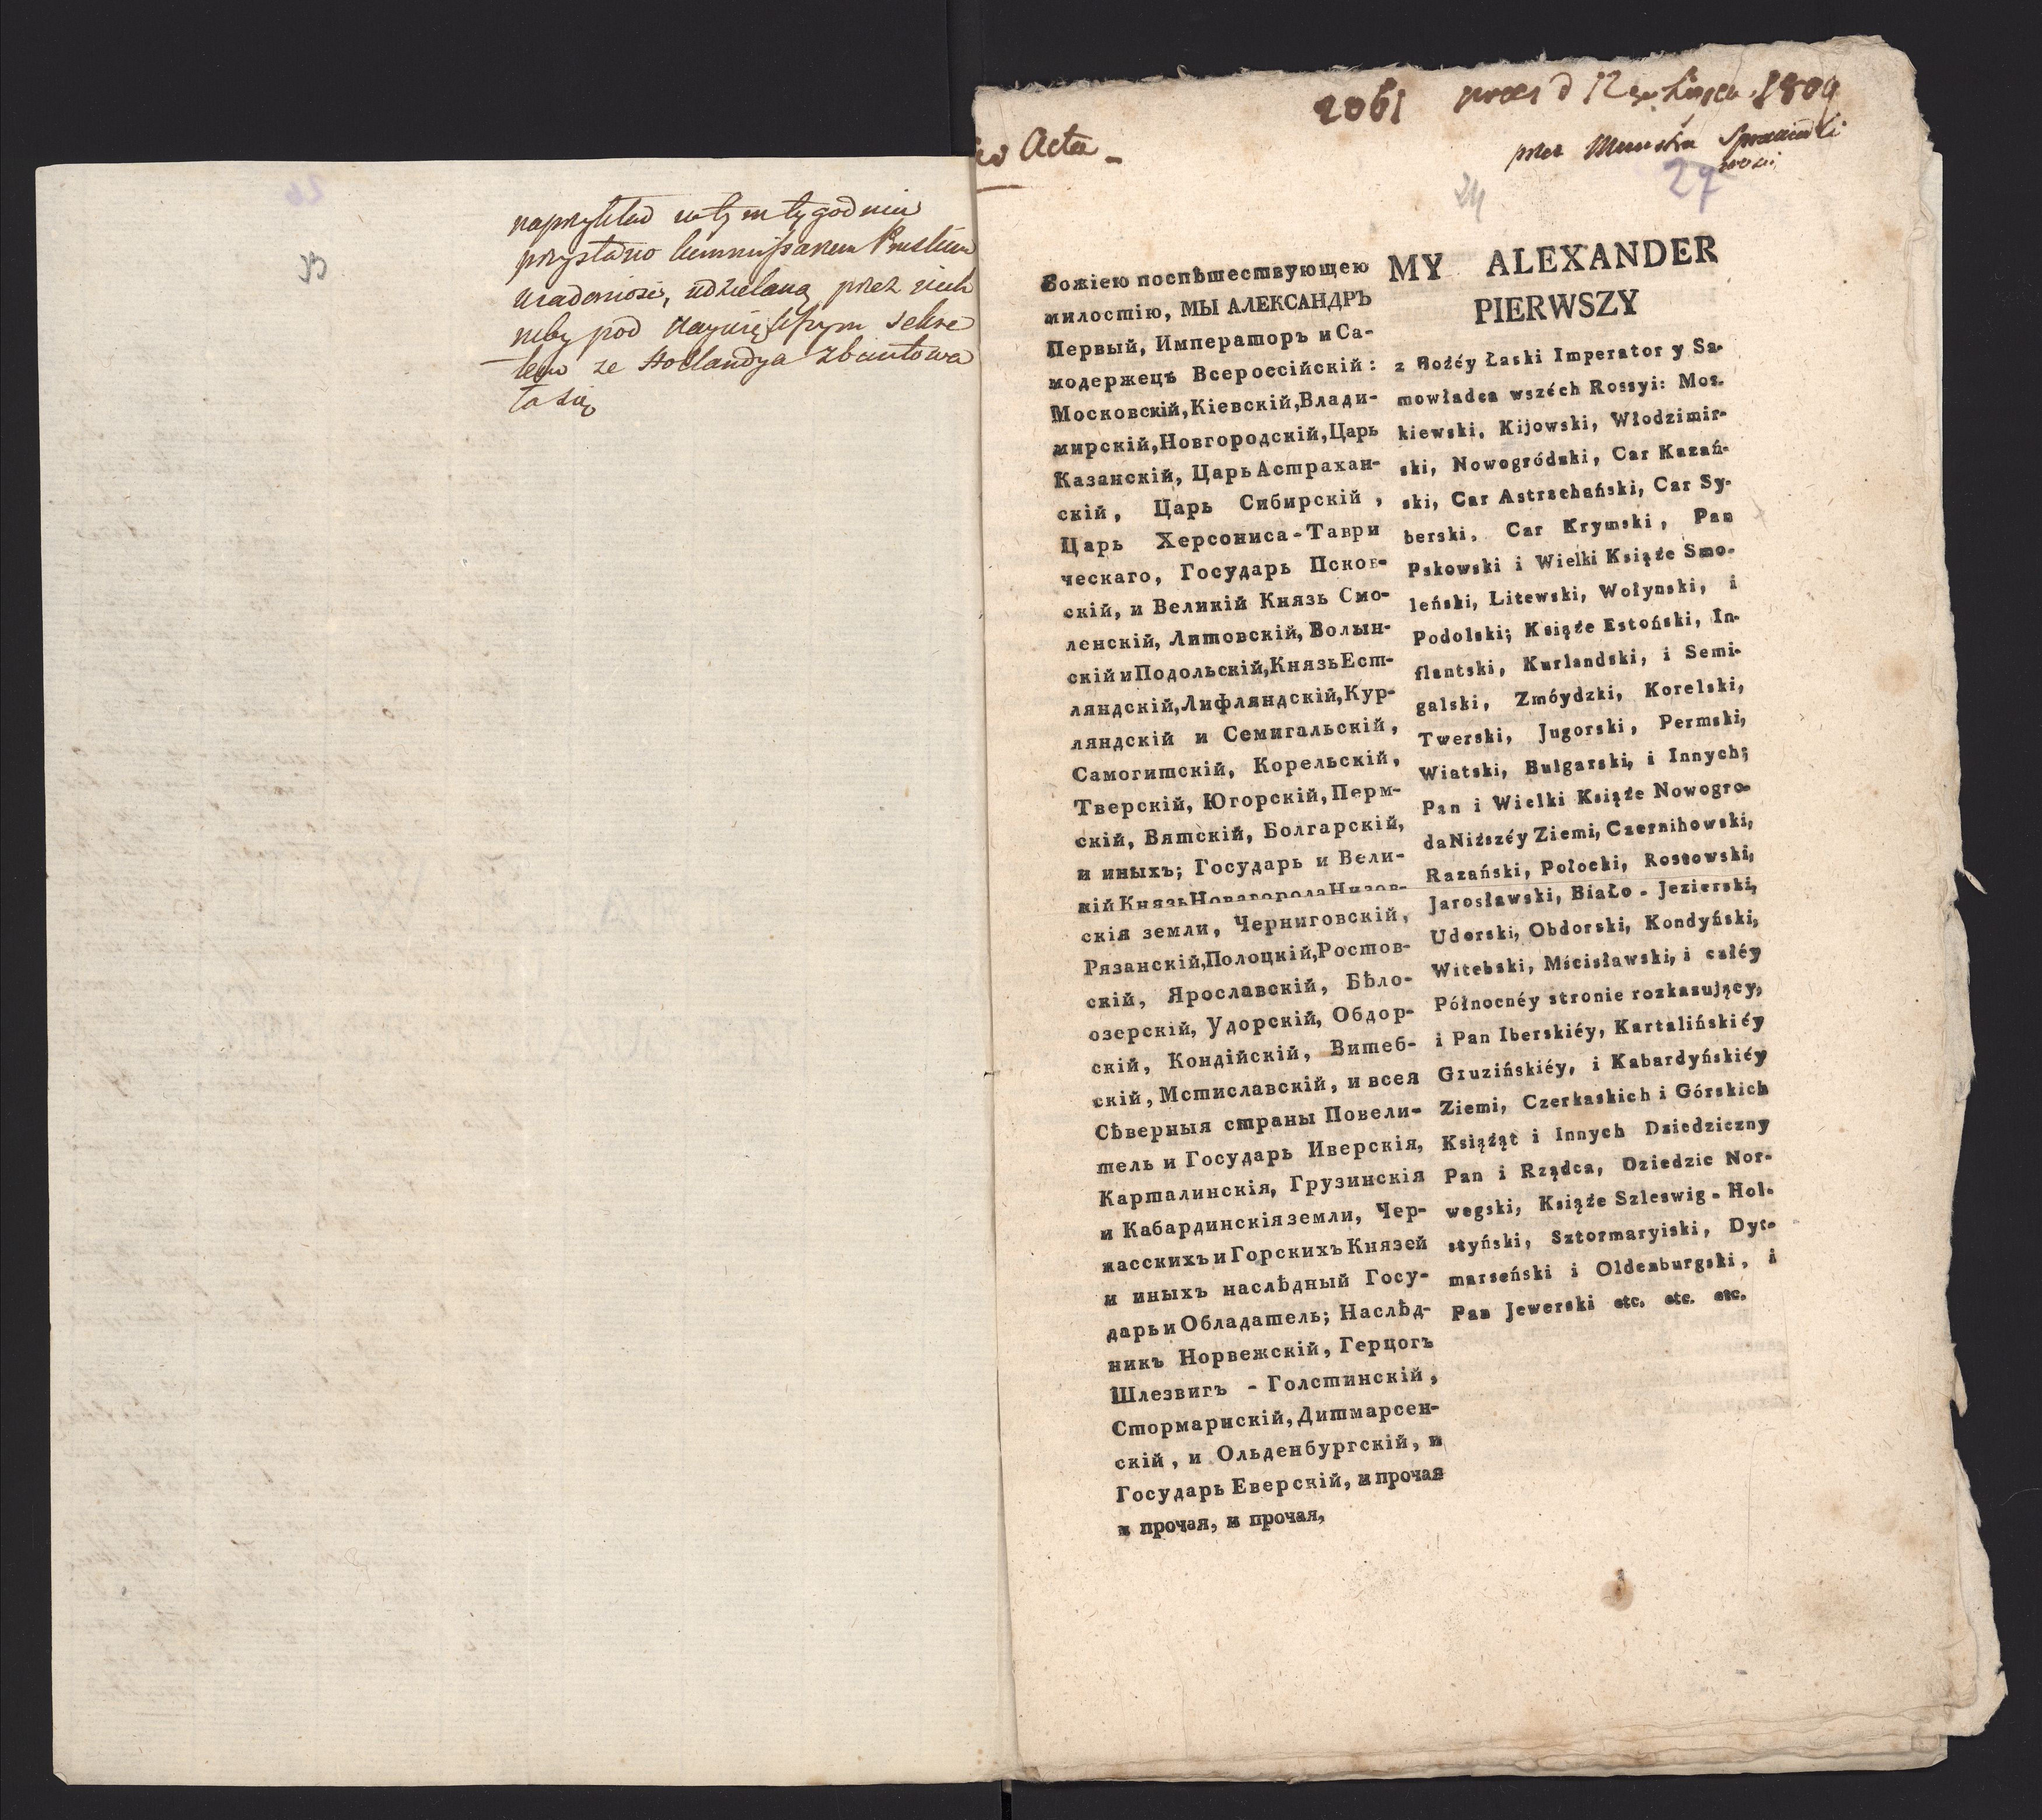 naprzykład w tym tygodniu
przysłano kommissarzom Pruskim
wiadomość, udzieloną przez nich
niby pod naywiększym sekre
tem ze Hollandya zbuntowa
ła się
ad Acta
2061 praes d 12 go Lipca 1809
przez Ministra Sprawiedli
wosci
24 27
Божіею поспѣшествующею
милостію, МЫ АЛЕКСАНДРЪ
Первый, Императоръ и Са-
модержецъ Всероссійскій:
Московскій, Кіевскій, Влади-
мирскій, Новгородскій, Царь
Казанскій, Царь Астрахан-
скій, Царь Сибирскій,
Царь Херсониса-Таври
ческаго, Государь Псков-
скій, и Великій Князь Смо-
ленскій, Литовскій, Волын-
скій и Подольскій, Князь Ест-
ляндскій, Лифляндскій, Кур-
ляндскій и Семигальскій,
Самогитскій, Корельскій,
Тверскій, Югорскій, Перм-
скій, Вятскій, Болгарскій,
и иныхъ; Государь и Вели-
кій Князь Новагорода Низов-
скія земли, Черниговскій,
Рязанскій, Полоцкій, Ростов-
скій, Ярославскій, Бѣло-
озерскій, Удорскій, Обдор-
скій, Кондійскій, Витеб-
скій, Мстиславскій, и всея
Сѣверныя страны Повели-
тель и Государь Иверскія,
Карталинскія, Грузинскія
и Кабардинскія земли, Чер-
касскихъ и Горскихъ Князей
и иныхъ наслѣдный Госу-
дарь и Обладатель; Наслѣд-
никъ Норвежскій, Герцогъ
Шлезвигъ - Голстинскій,
Стормарнскій, Дитмарсен-
скій, и Ольденбургскій, и
Государь Еверскій, и прочая
и прочая, и прочая,
MY ALEXANDER
PIERWSZY
z Bożéy Łaski Imperator y Sa-
mowładca wszéch Rossyi: Mos-
kiewski, Kijowski, Włodzimir-
ski, Nowogródzki, Car Kazań-
ski, Car Astrachański, Car Sy-
berski, Car Krymski, Pan
Pskowski i Wielki Książe Smo-
leński, Litewski, Wołynski, i
Podolski; Książe Estoński, In-
flantski, Kurlandski, i Semi-
galski, Zmóydzki, Korelski,
Twerski, Jugorski, Permski,
Wiatski, Bulgarski, i Innych;
Pan i Wielki Książe Nowogro-
da Niższéy Ziemi, Czernihowski,
Razański, Połocki, Rostowski,
Jarosławski, BiaŁo - Jezierski,
Udorski, Obdorski, Kondyński,
Witebski, Mścisławski, i całéy
Północnéy stronie rozkazujący,
i Pan Iberskiéy, Kartalińskiéy
Gruzińskiéy, i Kabardyńskiéy
Ziemi, Czerkaskich i Górskich
Książąt i Innych Dziedziczny
Pan i Rządca, Dziedzic Nor-
wegski, Książe Szleswig - Hol-
styński, Sztormaryiski, Dyt-
marseński i Oldenburgski, i
Pan Jewerski etc. etc. etc.